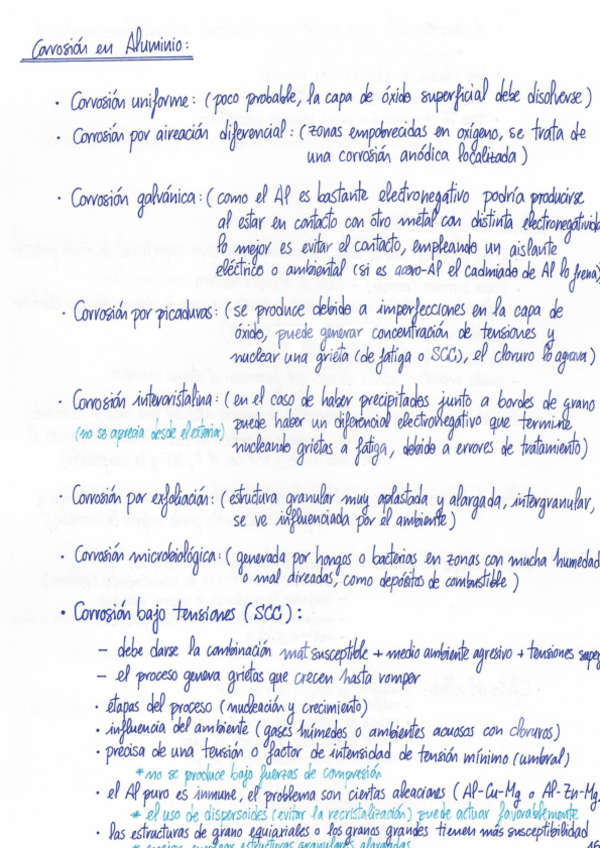 Corrosión en Aluminio:
· Corrosión uniforme: (poco probable, la capa de óxido superficial debe disolverse)
· Corrosión por aireación diferencial: (zonas empobrecidas en oxígeno, se trata de
una corrosión anódica localizada)
· Corrosión galvánica: (como el Al es bastante electronegativo podría producirse
al estar en contacto con otro metal con distinta electronegativida
lo mejor es evitar el contacto, empleando un aislante
eléctrico o ambiental (si es acero-Al el cadmiado de Al lo frena)
· Corrosión por picaduras: (se produce debido a imperfecciones en la capa de
óxido, puede generar concentración de tensiones y
nuclear una grieta (de fatiga o SCC), el cloruro lo agrava)
· Corrosión intercristalina: (en el caso de haber precipitades junto a bordes de grano
(no se aprecia desde el exterior) puede haber un diferencial electronegativo que termine
nucleando grietas a fatiga, debido a errores de tratamiento)
· Corrosión por exfoliación: (estructura granular muy aplastada y alargada, intergranular,
se ve influenciada por el ambiente)
· Corrosión microbiológica: (generada por hongos o bacterias en zonas con mucha humedad
o mal aireadas, como depósitos de combustible)
· Corrosión bajo tensiones (SCC):
– debe darse la combinación mat susceptible + medio ambiente agresivo + tensiones super
– el proceso genera grietas que crecen hasta romper
· etapas del proceso (nucleación y crecimiento)
· influencia del ambiente (gases húmedos o ambientes acuosos con cloruros)
· precisa de una tensión o factor de intensidad de tensión mínimo (umbral)
* no se produce bajo fuerzas de compresión
· el Al puro es inmune, el problema son ciertas aleaciones (Al-Cu-Mg o Al-Zn-Mg,
* el uso de dispersoides (evitar la recristalización) puede actuar favorablemente
· las estructuras de grano equiaxiales o los granos grandes tienen más susceptibilidad
emplear estructuras granulares alargadas